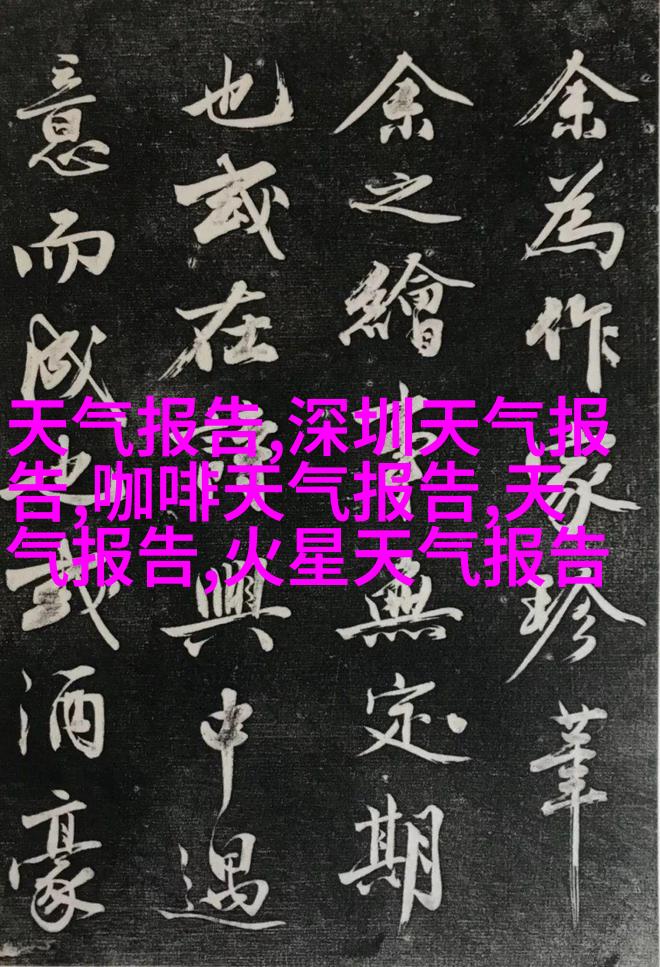 余為作家珍筆
余之繪事無定期
也或在興中遇
意而成也或酒豪
天气报告,深圳天气报
告,咖啡天气报告,天
气报告,火星天气报告